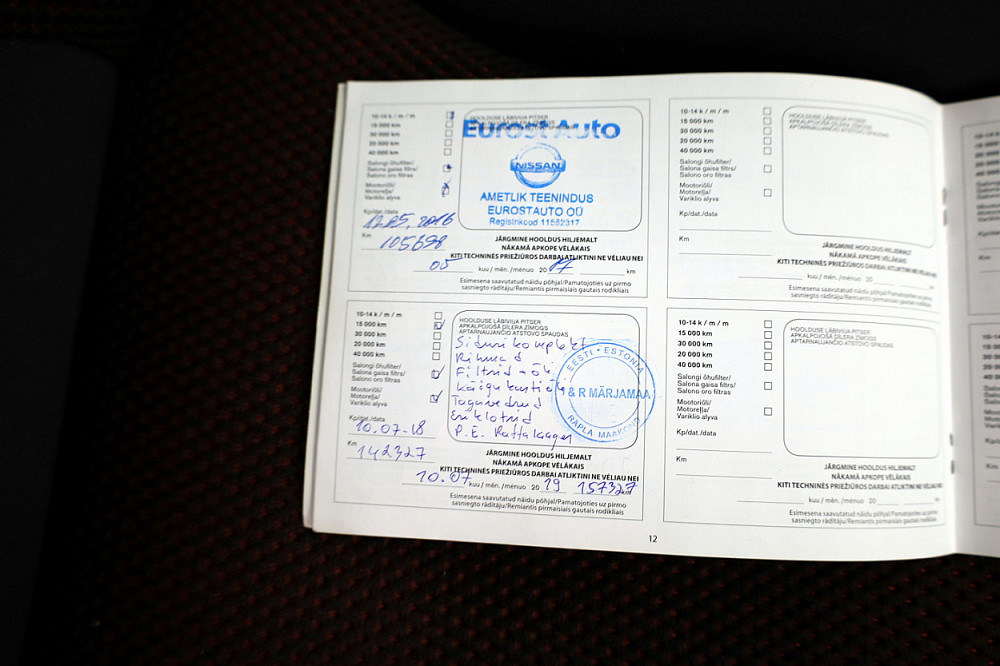 10-14 k / m / m
15 000 km
30 000 km
20 000 km
40 000 km
Salongi õhufilter/
Salona gaisa filtrs/
Salono oro filtras
Mootoriõli/
Motoreļļa/
Variklio alyva
Kp/dat./data
12.05.2016
Km
105698
HOOLDUSE LÄBIVIIJA PITSER
APKALPOJOŠĀ DĪLERA ZĪMOGS
APTARNAUJANČIO ATSTOVO SPAUDAS
Eurost Auto
NISSAN
AMETLIK TEENINDUS
EUROSTAUTO OÜ
Registrikood 11562317
JÄRGMINE HOOLDUS HILJEMALT
NĀKAMĀ APKOPE VĒLĀKAIS
KITI TECHNINĖS PRIEŽIŪROS DARBAI ATLIKTINI NE VĖLIAU NEI
05 kuu / mēn. /mėnuo 20 17 km
Esimesena saavutatud näidu põhjal/Pamatojoties uz pirmo
sasniegto rādītāju/Remiantis pirmaisiais gautais rodikliais
10-14 k / m / m
15 000 km
30 000 km
20 000 km
40 000 km
Salongi õhufilter/
Salona gaisa filtrs/
Salono oro filtras
Mootoriõli/
Motoreļļa/
Variklio alyva
Kp/dat./data
Km
HOOLDUSE LÄBIVIIJA PITSER
APKALPOJOŠĀ DĪLERA ZĪMOGS
APTARNAUJANČIO ATSTOVO SPAUDAS
JÄRGMINE HOOLDUS HILJEMALT
NĀKAMĀ APKOPE VĒLĀKAIS
KITI TECHNINĖS PRIEŽIŪROS DARBAI ATLIKTINI NE VĖLIAU NEI
kuu / mēn. /mėnuo 20 km
Esimesena saavutatud näidu põhjal/Pamatojoties uz pirmo
sasniegto rādītāju/Remiantis pirmaisiais gautais rodikliais
10-14 k / m / m
15 000 km
30 000 km
20 000 km
40 000 km
Salongi õhufilter/
Salona gaisa filtrs/
Salono oro filtras
Mootoriõli/
Motoreļļa/
Variklio alyva
Kp/dat./data
10.07-18
Km
142327
HOOLDUSE LÄBIVIIJA PITSER
APKALPOJOŠĀ DĪLERA ZĪMOGS
APTARNAUJANČIO ATSTOVO SPAUDAS
Siduri komplekt
Rihmad
Filtrid - õli
Käigukastiõli
Tagavedrud
Eriklotsid
P. E. Rattalaager
EESTI • ESTONIA
& R MÄRJAMAA
RAPLA MAAKOND
JÄRGMINE HOOLDUS HILJEMALT
NĀKAMĀ APKOPE VĒLĀKAIS
KITI TECHNINĖS PRIEŽIŪROS DARBAI ATLIKTINI NE VĖLIAU NEI
10.07 kuu / mēn. /mėnuo 20 19 157327 km
Esimesena saavutatud näidu põhjal/Pamatojoties uz pirmo
sasniegto rādītāju/Remiantis pirmaisiais gautais rodikliais
10-14 k / m / m
15 000 km
30 000 km
20 000 km
40 000 km
Salongi õhufilter/
Salona gaisa filtrs/
Salono oro filtras
Mootoriõli/
Motoreļļa/
Variklio alyva
Kp/dat./data
Km
HOOLDUSE LÄBIVIIJA PITSER
APKALPOJOŠĀ DĪLERA ZĪMOGS
APTARNAUJANČIO ATSTOVO SPAUDAS
JÄRGMINE HOOLDUS HILJEMALT
NĀKAMĀ APKOPE VĒLĀKAIS
KITI TECHNINĖS PRIEŽIŪROS DARBAI ATLIKTINI NE VĖLIAU NEI
kuu / mēn. /mėnuo 20 km
Esimesena saavutatud näidu põhjal/Pamatojoties uz pirmo
sasniegto rādītāju/Remiantis pirmaisiais gautais rodikliais
12